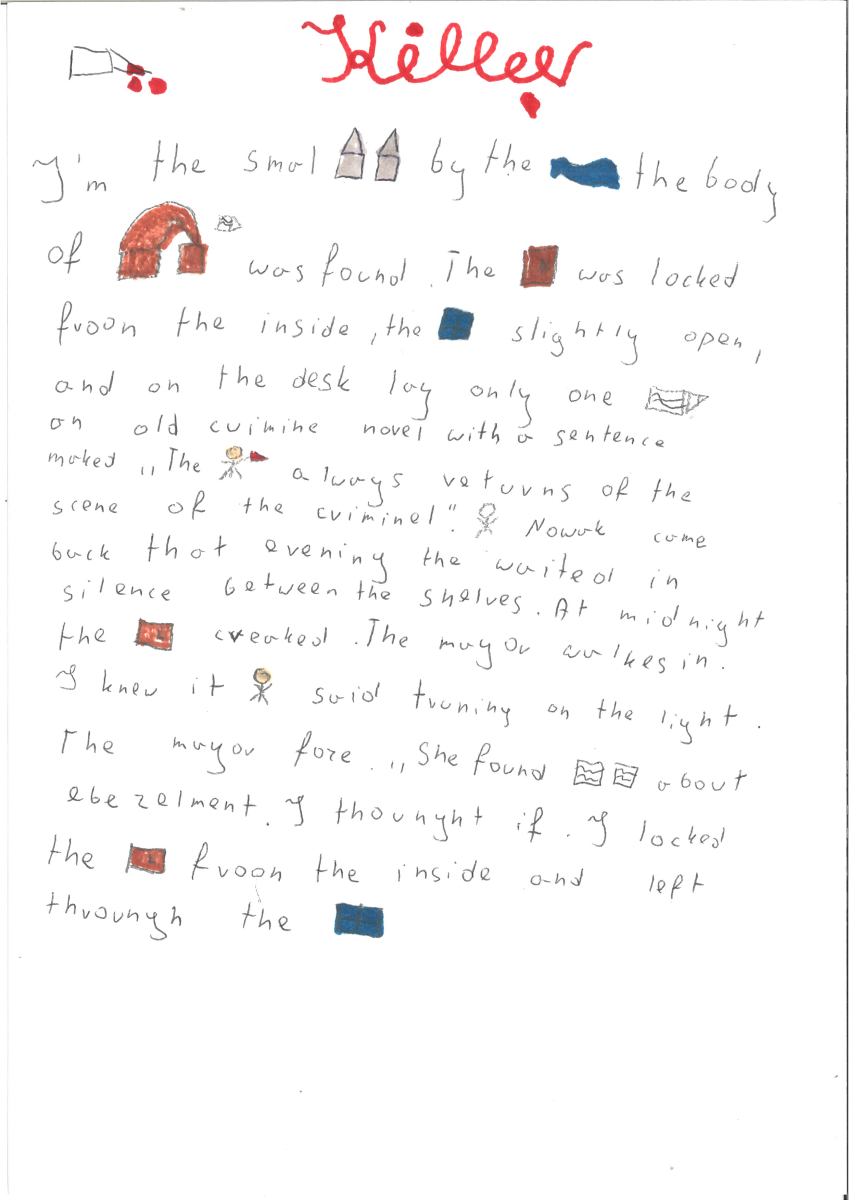 Killer
I'm the smal by the the body
of was found. The was locked
froon the inside, the slightly open,
and on the desk lay only one
an old cuimine novel with a sentence
maked „The always returns of the
scene of the criminel". Nowak came
back that evening the waited in
silence between the shelves. At midnight
the creaked. The mayor walkes in.
I knew it said truning on the light.
The mayor foze. „She found about
ebezelment. I thounght if. I locked
the froon the inside and left
throungh the